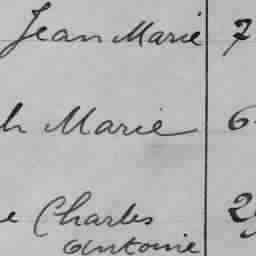 Jean Marie 7
h Marie 6
e Charles 29
Antoine